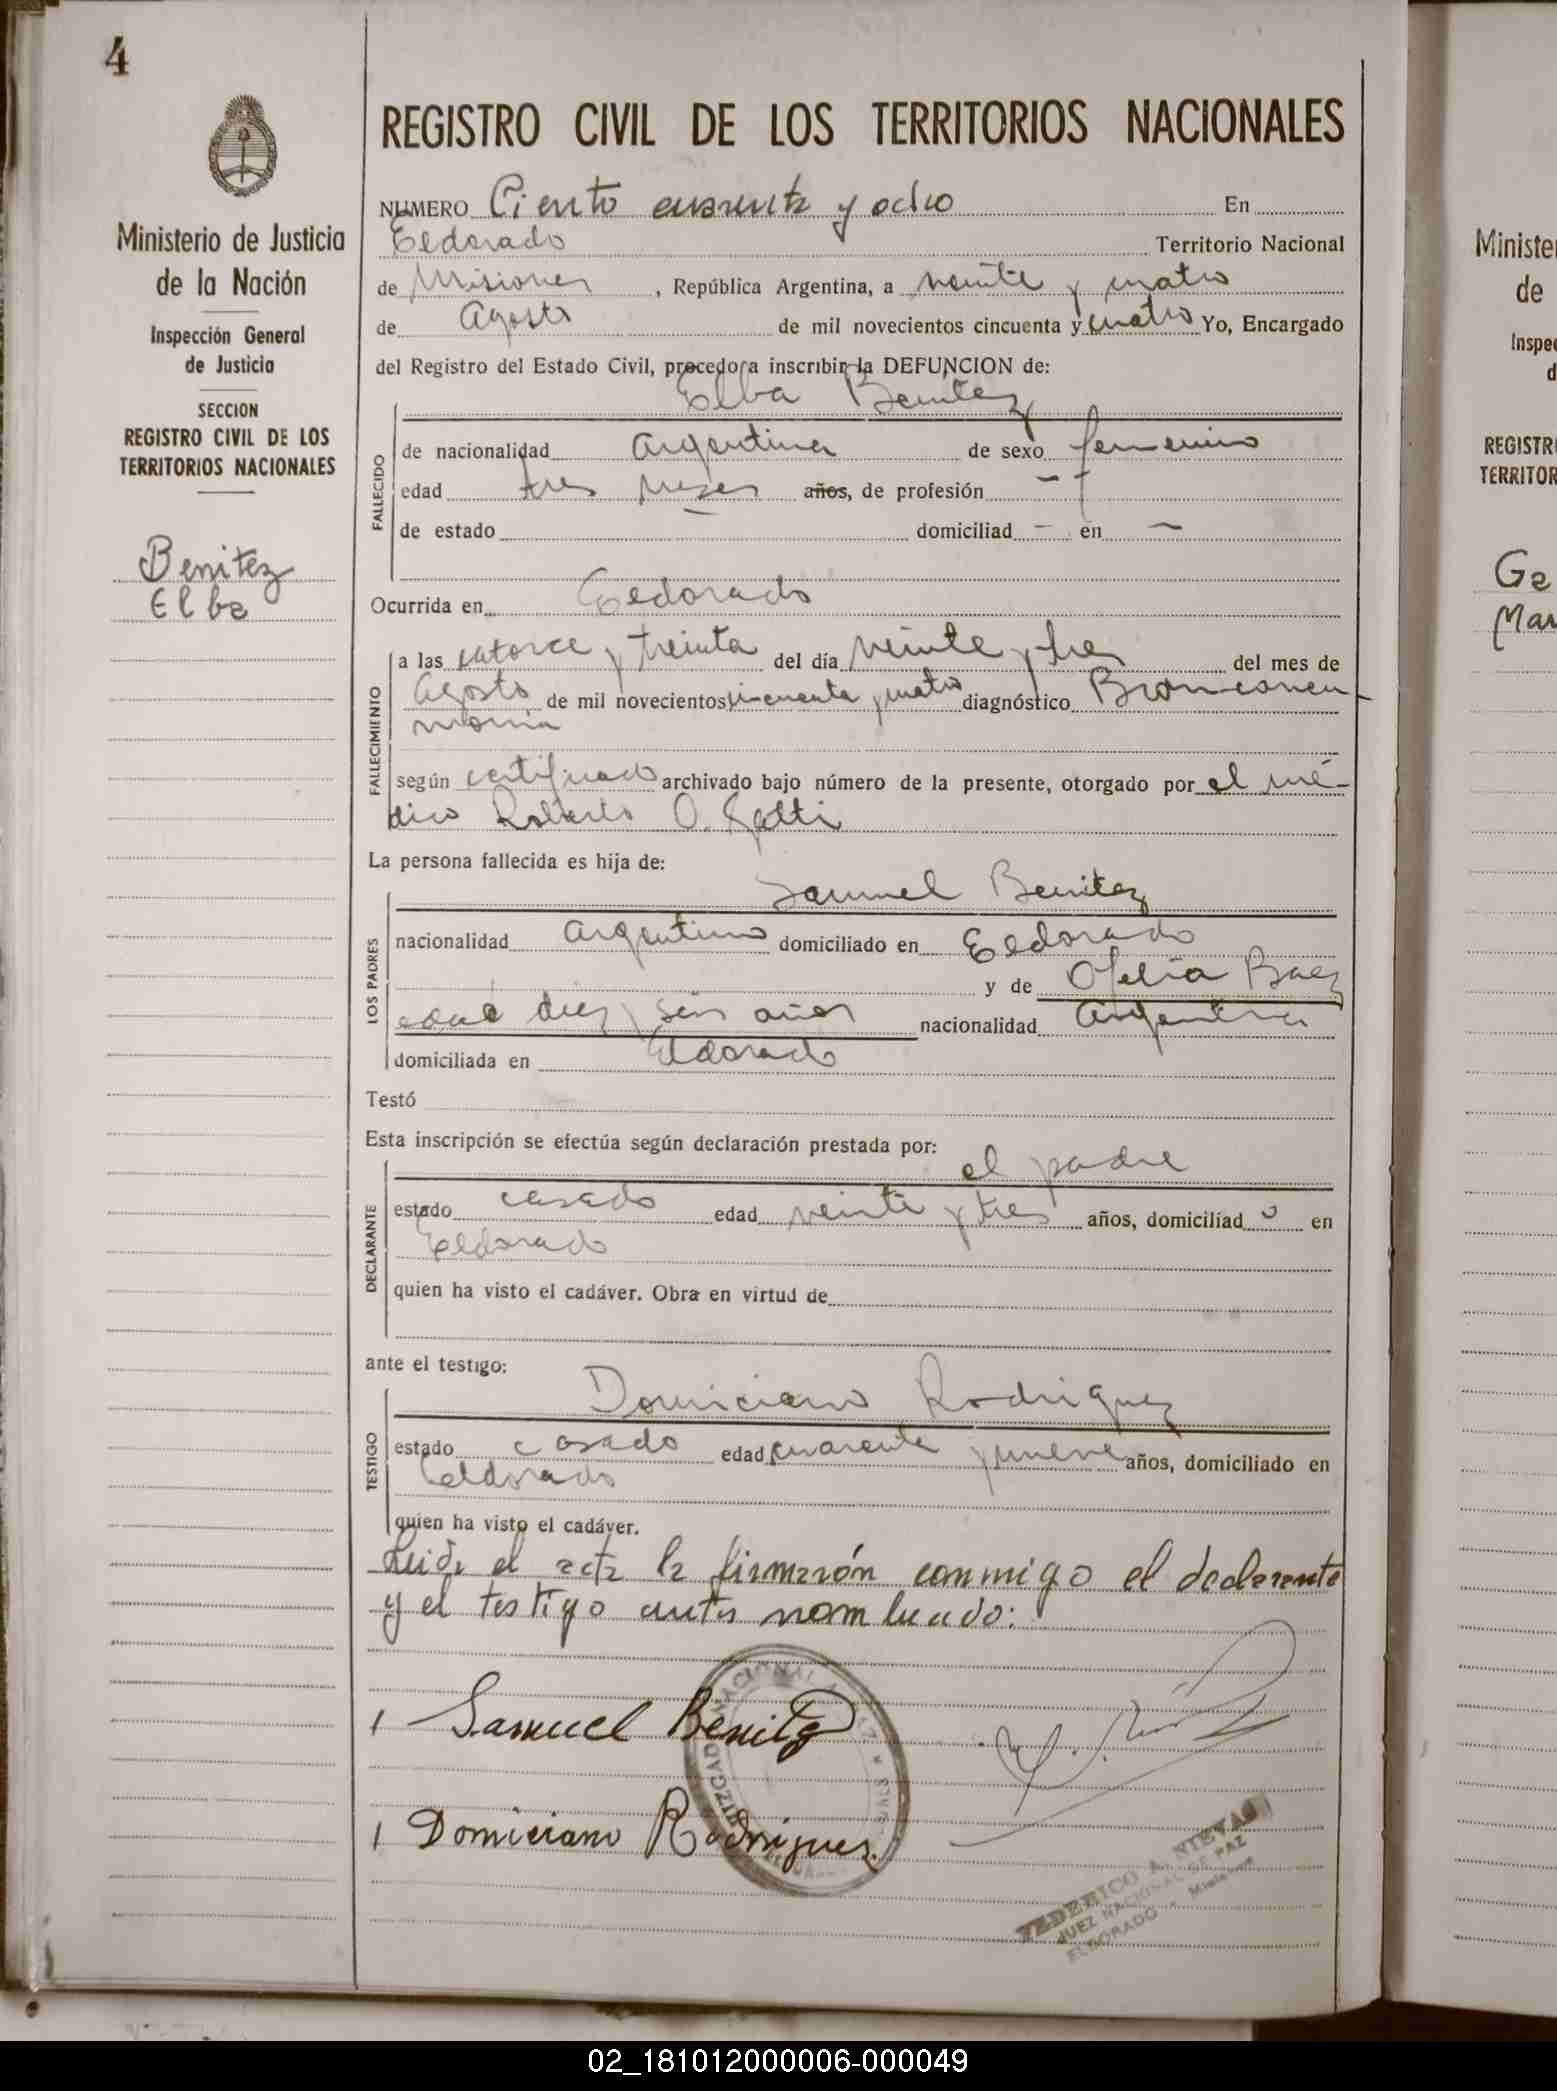 4
Ministerio de Justicia
de la Nación
Inspección General
de Justicia
SECCION
REGISTRO CIVIL DE LOS
TERRITORIOS NACIONALES
Benitez
Elba
REGISTRO CIVIL DE LOS TERRITORIOS NACIONALES
NUMERO Ciento cuarenta y ocho En
Eldorado Territorio Nacional
de Misiones, República Argentina, a veinte y cuatro
de Agosto de mil novecientos cincuenta y cuatro Yo, Encargado
del Registro del Estado Civil, procedo a inscribir la DEFUNCION de:
Elba Benitez
FALLECIDO
de nacionalidad Argentina de sexo femenino
edad tres meses años, de profesión -
de estado - domiciliad - en -
Ocurrida en Eldorado
FALLECIMIENTO
a las catorce y treinta del día veinte y tres del mes de
Agosto de mil novecientos cincuenta y cuatro diagnóstico Bronconeu-
monia
según certificado archivado bajo número de la presente, otorgado por el mé-
dico Roberto O. Gatti
La persona fallecida es hija de:
Samuel Benitez
LOS PADRES
nacionalidad Argentino domiciliado en Eldorado
y de Ofelia Baez
edad diez y seis años nacionalidad Argentina
domiciliada en Eldorado
Testó
Esta inscripción se efectúa según declaración prestada por:
el padre
DECLARANTE
estado casado edad veinte y tres años, domiciliad o en
Eldorado
quien ha visto el cadáver. Obra en virtud de
ante el testigo:
Domiciano Rodriguez
TESTIGO
estado casado edad cuarenta y nueve años, domiciliado en
Eldorado
quien ha visto el cadáver.
Leida el acta la firmarón conmigo el declarante
y el testigo antes nombrado:
Samuel Benitez
Domiciano Rodriguez
JUZGADO NACIONAL
FEDERICO A. NIEVAS
JUEZ NACIONAL DE PAZ
ELDORADO - Misiones
Ministe
de
Inspe
d
REGISTR
TERRITOR
Ga
Mar
02_181012000006-000049